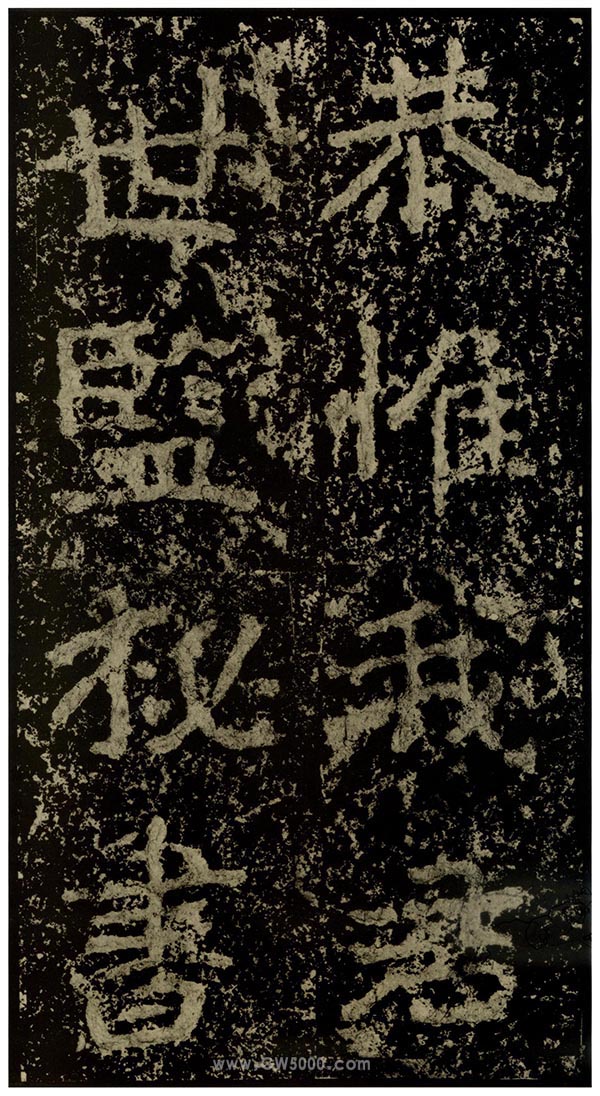 恭惟我君
世監祕書
www.GW5000.com